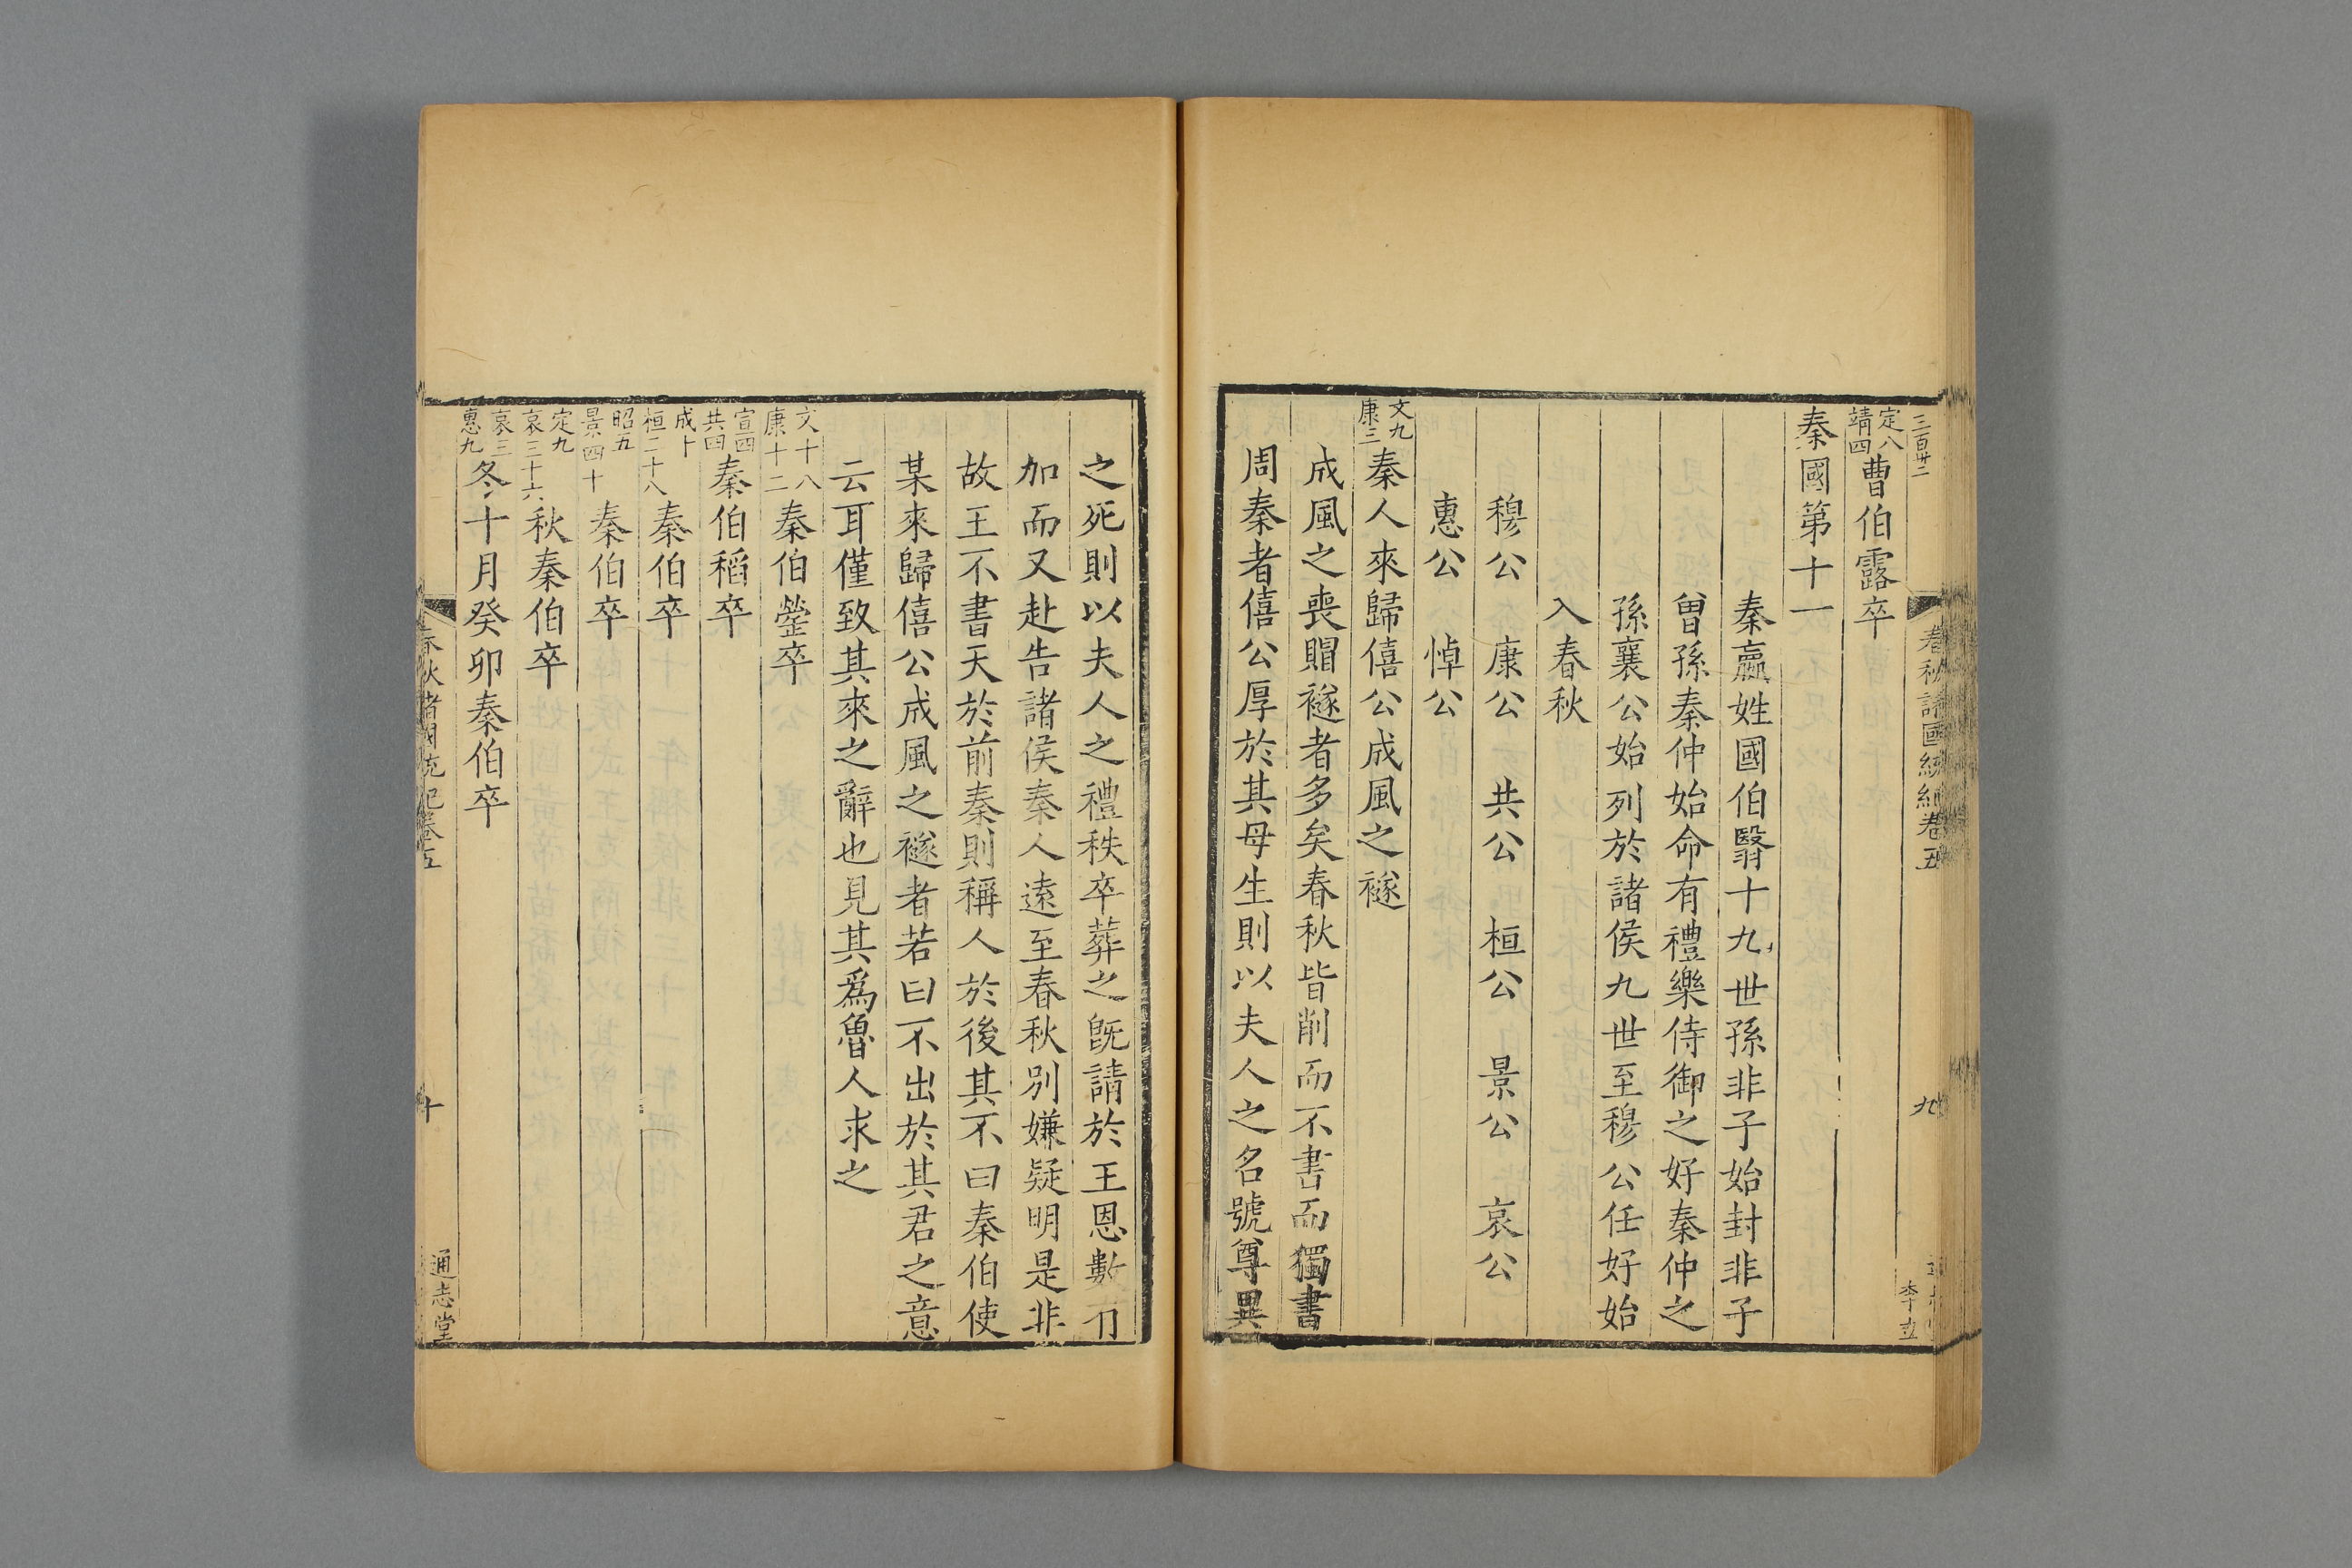 三百卅二
春秋諸國統紀卷五
九
李立
定八
靖四
曹伯露卒
秦國第十一
秦嬴姓國伯翳十九世孫非子始封非子
曾孫秦仲始命有禮樂侍御之好秦仲之
孫襄公始列於諸侯九世至穆公任好始
入春秋
穆公 康公 共公 桓公 景公 哀公
惠公 悼公
文九
康三
秦人來歸僖公成風之襚
成風之喪賵襚者多矣春秋皆削而不書而獨書
周秦者僖公厚於其母生則以夫人之名號尊異
之死則以夫人之禮秩卒葬之旣請於王恩數
加而又赴告諸侯秦人遠至春秋別嫌疑明是非
故王不書天於前秦則稱人於後其不曰秦伯使
某來歸僖公成風之襚者若曰不出於其君之意
云耳僅致其來之辭也見其爲魯人求之
文十八
康十二
秦伯罃卒
宣四
共四
秦伯稻卒
成十
桓二十八
秦伯卒
昭五
景四十
秦伯卒
定九
哀三十六
秋秦伯卒
哀三
惠九
冬十月癸卯秦伯卒
春秋諸國統紀卷五
十
通志堂